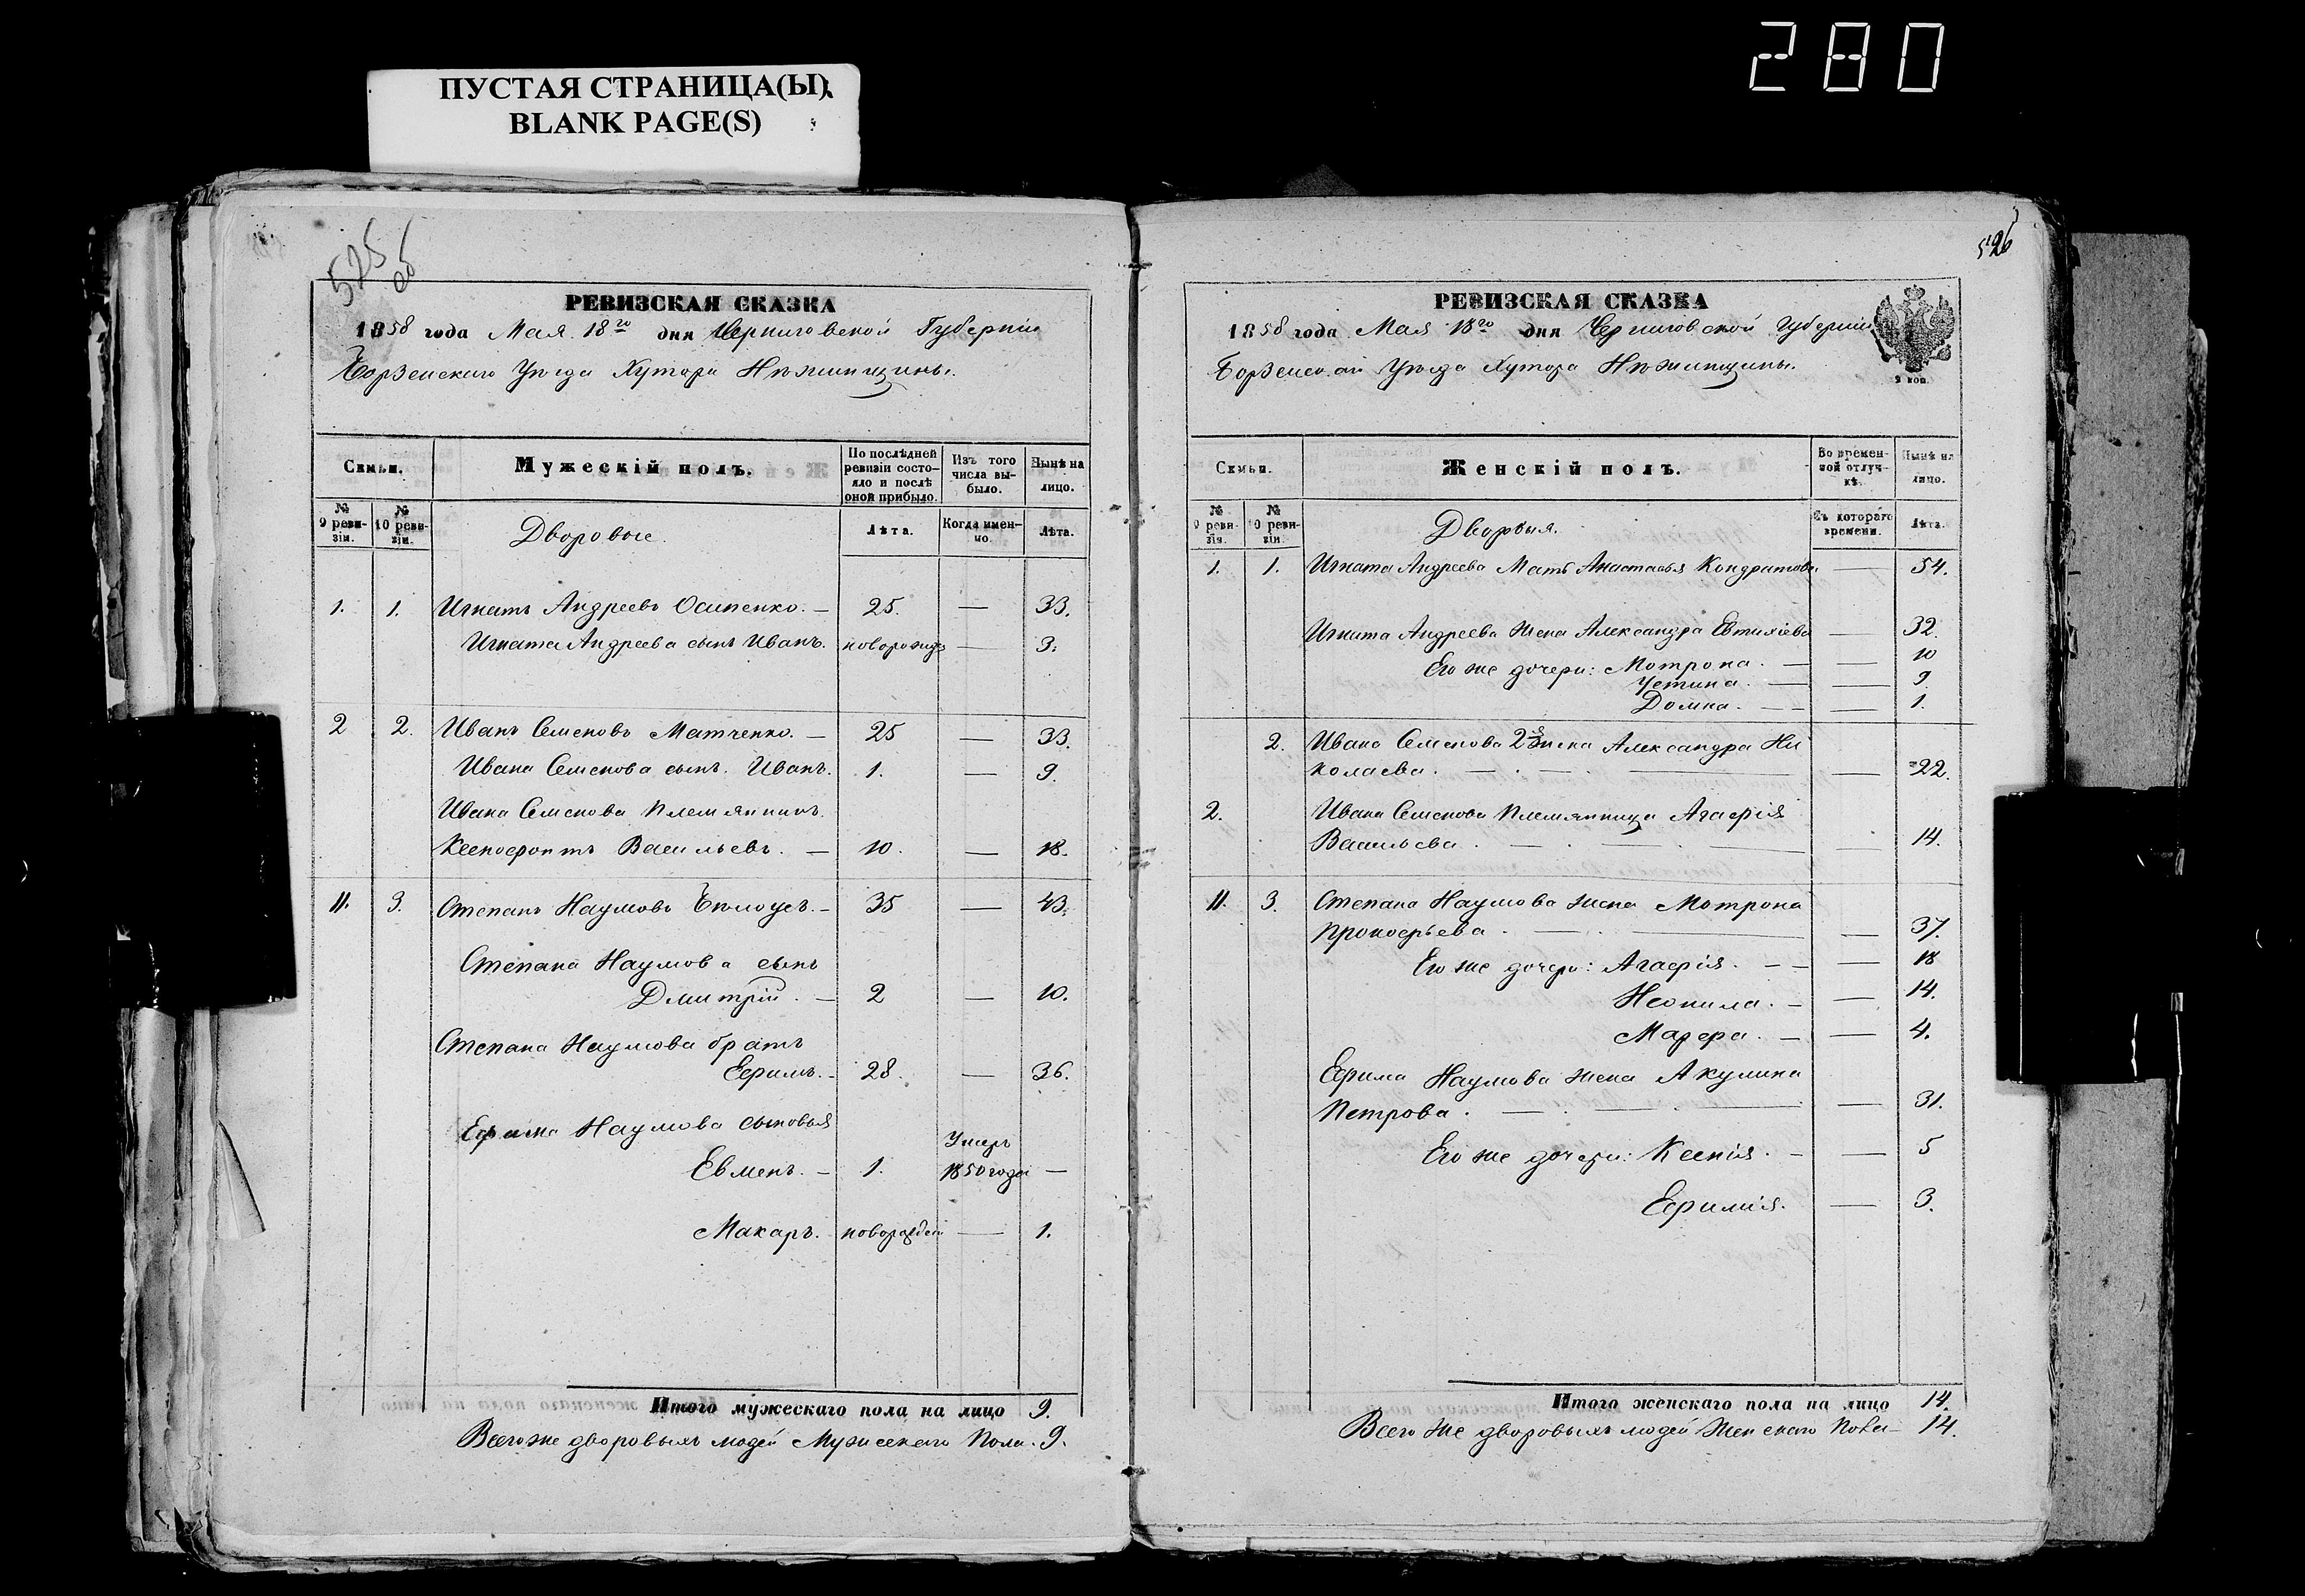 280
ПУСТАЯ СТРАНИЦА(Ы)
BLANK PAGE(S)
525 об
РЕВИЗСКАЯ СКАЗКА
1858 года Мая 18го дня Черниговской Губерніи
Борзенскаго Уѣзда Хутора Нѣжинщины.
Семьи.
Мужескій полъ.
По послѣдней ревизіи состояло и послѣ оной прибыло.
Изъ того числа выбыло.
Нынѣ на лицо.
№ 9 ревизіи.
№ 10 ревизіи.
Дворовые.
Лѣта.
Когда именно.
Лѣта.
1. 1. Игнатъ Андреевъ Осипенко. — 25. — 33.
Игната Андреева сынъ Иванъ. новорожде — 3.
2 2. Иванъ Семеновъ Матченко. — 25 — 33.
Ивана Семенова сынъ. Иванъ. 1. — 9.
Ивана Семенова Племянникъ
Ксенофонтъ Васильевъ. — 10. — 18.
11. 3. Степанъ Наумовъ Бѣлоусъ. — 35 — 43.
Степана Наумова сынъ
Дмитрій. — 2 — 10.
Степана Наумова братъ
Ефимъ. — 28. — 36.
Ефима Наумова сыновья
Евменъ. — 1. Умеръ 1850 года —
Макаръ. новорожден — 1.
Итого мужескаго пола на лицо 9.
Всего же дворовыхъ людей Мужескаго Пола. 9.
526
РЕВИЗСКАЯ СКАЗКА
1858 года Мая 18го дня Черниговской Губерніи
Борзенской Уѣзда Хутора Нѣжинщины.
2 коп.
Семьи.
Женскій полъ.
Во временной отлучкѣ.
Нынѣ на лицо.
№ 9 ревизіи.
№ 10 ревизіи.
Дворовыя.
Съ котораго времени.
Лѣта.
1. 1. Игната Андреева Мать Анастасья Кондратова — 54.
Игната Андреева жена Александра Евтихіева — 32.
Его же дочери: Мотрона. — — 10
Устина. — — 9
Домна. — — — 1.
2. Ивана Семенова 2я жена Александра Ни
колаева. — . — . — — 22.
2. Ивана Семенова Племянница Агафія
Васильева. — . — . — — 14.
11. 3. Степана Наумова жена Мотрона
Прокофьева. — . — — 37.
Его же дочери: Агафія. — — — 18
Неонила. — — 14.
Мадера. — — 4.
Ефима Наумова жена Акулина
Петрова. — . — . — — 31.
Его же дочери: Ксенія. — — 5
Ефимія. — 3.
Итого женскаго пола на лицо 14.
Всего же дворовыхъ людей Женскаго Пола — 14.